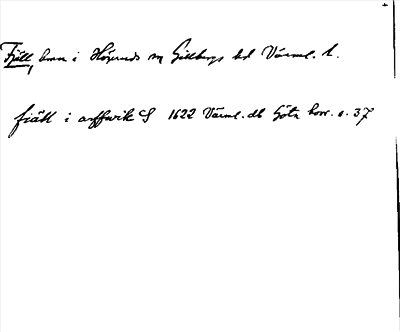 Fjäll, hmn i Högeruds sn Gillbergs hd Värml. l.
fiätt i arffwik S 1622 Värml. dl Göta horr. s. 37